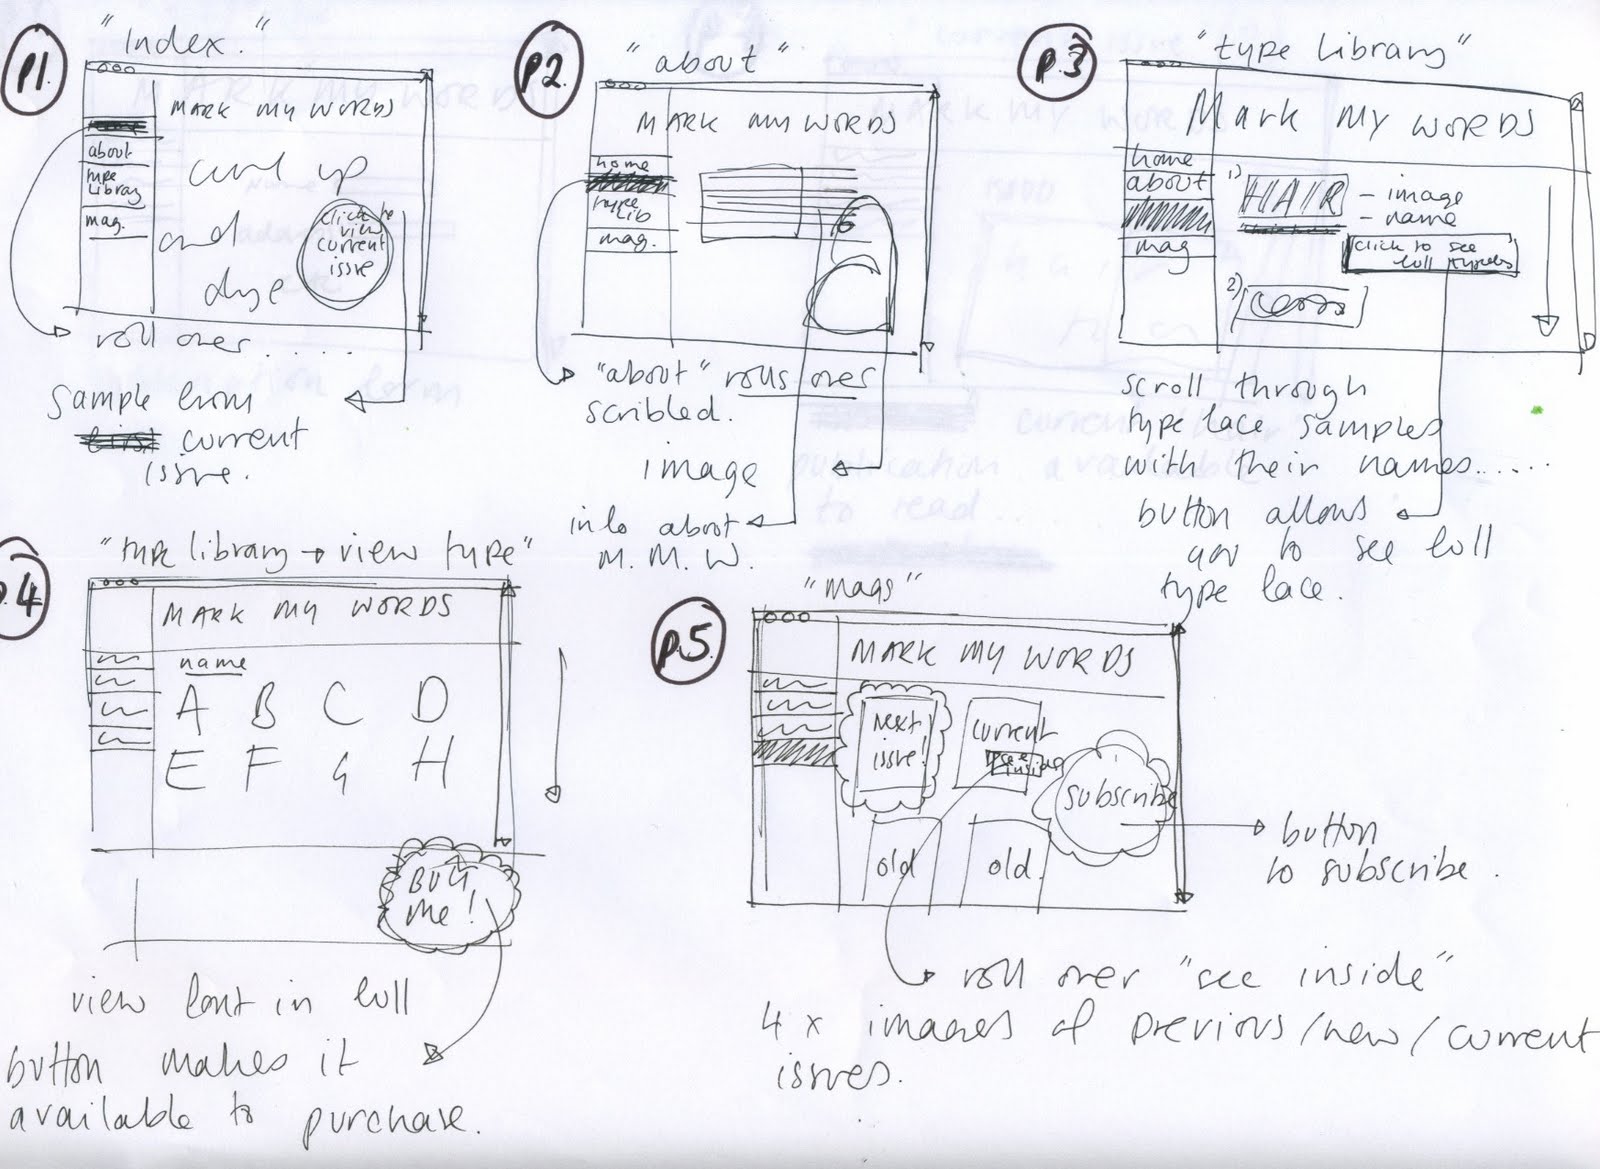 P1.
"Index."
MARK MY WORDS
about
type
library
mag.
curl up
and
dye
click to
view
current
issue
roll over......
Sample from
current
issue.
P2.
"about"
MARK MY WORDS
home
type
lib
mag.
"about" rolls over
scribled.
image
info about
M.M.W.
P.3
"type library"
Mark my words
home
about
mag
1)
HAIR
- image
- name
click to see
full typeface
2)
scroll through
type face samples
with their names.....
button allows
you to see full
type face.
P.4
"type library → view type"
MARK MY WORDS
name
A B C D
E F G H
BUY
me!
view font in full
button makes it
available to purchase.
P.5
"mags"
MARK MY WORDS
next
issue!
current
see
inside
subscribe
old
old.
button
to subscribe.
roll over "see inside"
4 x images of previous/new/current
issues.